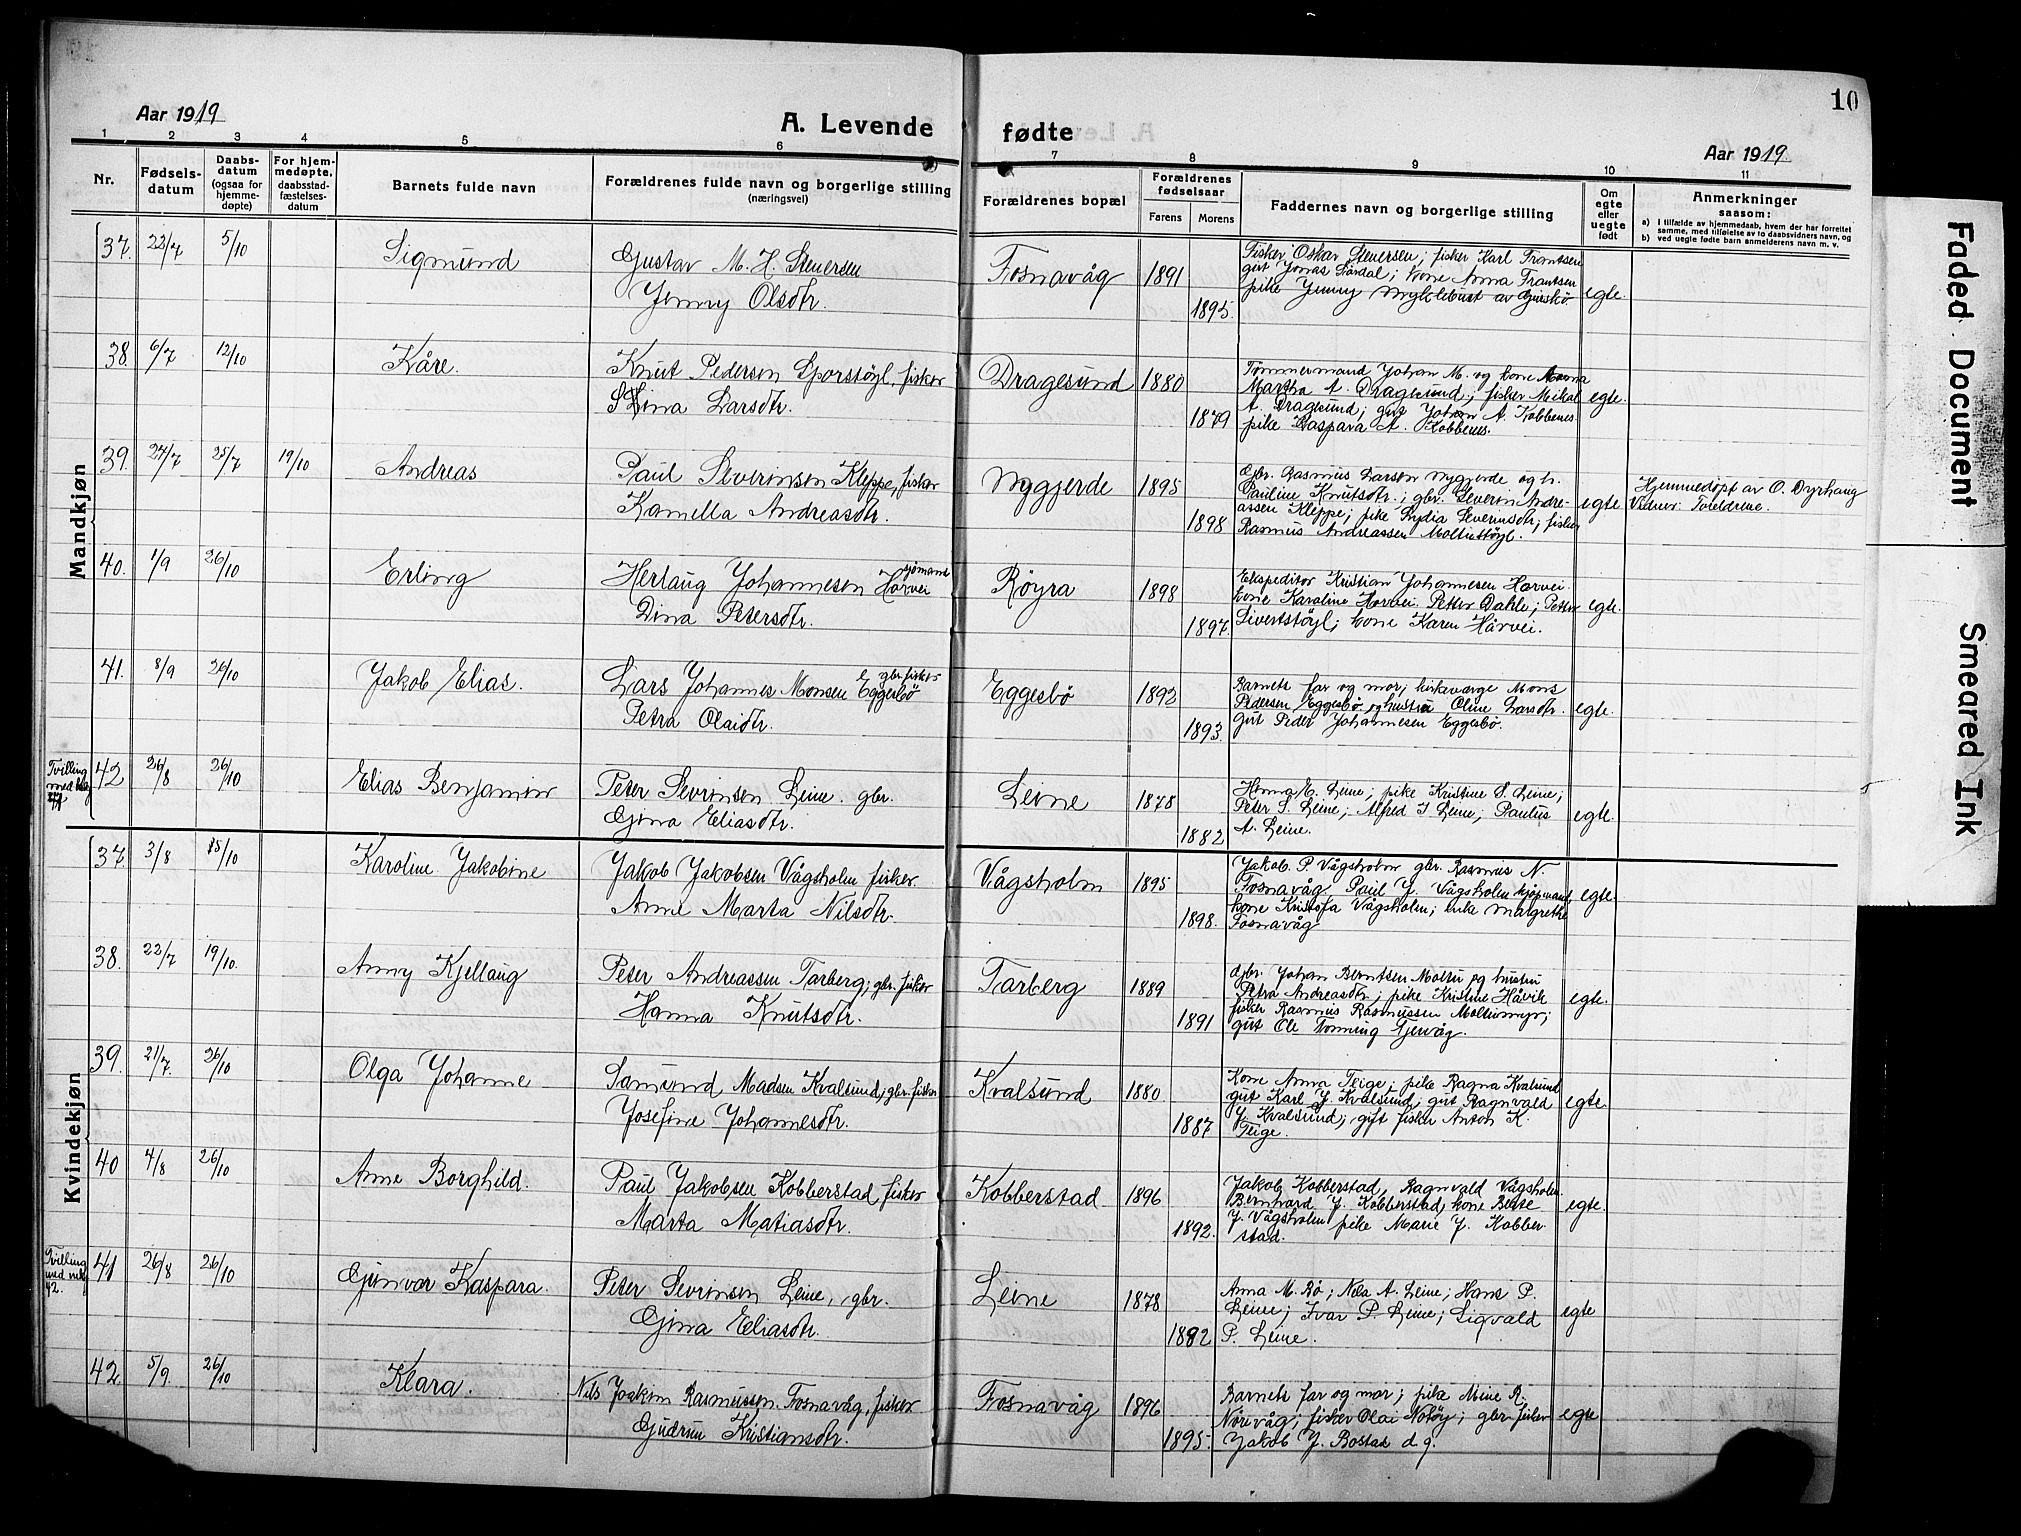 Aar 1919
A. Levende
1 2 3 4 5 6
Nr.
Fødsels-
datum
Daabs-
datum
(ogsaa for
hjemme-
døpte)
For hjem-
medøpte,
daabsstad-
fæstelses-
datum
Barnets fulde navn
Forældrenes fulde navn og borgerlige stilling
(næringsvei)
Mandkjøn
37. 22/7 5/10 Sigmund Gustav M. H. Stenersen
Jenny Olsdtr.
38. 6/7 12/10 Kåre. Knut Pedersen Sporstøyl, fisker
Lina Larsdtr.
39. 24/7 25/7 19/10 Andreas Paul Severinsen Kleppe, fisker
Kamella Andreasdtr.
40. 1/9 26/10 Erling Herlaug Johannesen Hårvei sjömand
Dina Petersdtr.
41. 8/9 26/10 Jakob Elias. Lars Johannes Monsen Eggesbø gbr. fisker
Petra Olaidtr.
Tvilling
42 26/8 26/10 Elias Benjamin Peter Sevrinsen Leine. gbr.
Gjina Eliasdtr.
Kvindekjøn
37 3/8 15/10 Karoline Jakobine Jakob Jakobsen Vågsholm fisker.
Anne Marta Nilsdtr.
38. 22/7 19/10. Anny Kjellaug Peter Andreassen Tarberg, gbr. fisker
Hanna Knutsdtr.
39. 21/7. 26/10 Olga Johanne Samund Madsen Kvalsund, gbr. fisker
Josefine Johannesdtr.
40 4/8 26/10 Anne Borghild. Paul Jakobsen Kobberstad, fisker
Marta Matiasdtr.
Tvilling
med
42.
41 26/8 26/10 Gunvor Kaspara. Peter Sevrinsen Leine, gbr.
Gjina Eliasdtr.
42 5/9. 26/10 Klara. Nils Joakim Rasmussen Fosnavåg, fisker
Gudrun Kristiansdtr.
10
fødte
Aar 1919.
7 8 9 10 11
Forældrenes bopæl
Forældrenes
fødselsaar
Farens Morens
Faddernes navn og borgerlige stilling
Om
egte
eller
uegte
født
Anmerkninger
saasom:
a) I tilfælde av hjemmedaab, hvem der har forrettet
samme, med tilføielse av to daabsvidners navn, og
b) ved uegte fødte barn anmelderens navn m. v.
Fosnavåg 1891 1895. egte.
Fisker Oskar Stenersen; fisker Karl Frantsen
gut Jonas Lårdal; kone Anna Frantsen
pike Jenny Myklebust av Gurskø
Dragesund 1880 1879 egte.
Tømmermand Johan M. og kone Anna
Martha A. Dragesund; fisker Mikal
A. Dragesund; gut Johan A. Kobbenes
pike Kaspara A. Kobbenes.
Nygjerde 1895 1898 egte
gbr. Rasmus Larsen Nygjerde og h.
Pauline Knutsdtr.; gbr. Severin Andre-
assen Kleppe; pike Lydia Severinsdtr; fisker
Rasmus Andreassen Moltustøyl.
Hjemmedøpt av O. Dyrhaug
Vidner: Foreldrene.
Røyra 1898 1897. egte.
Ekspeditør Kristian Johannesen Hårvei.
kone Karoline Hårvei. Petter Dahle; Petter
Sivertstøyl; kone Karen Hårvei.
Eggesbö 1892 1893. egte.
Barnets far og mor, kirkeværge Mons
Pedersen Eggesbö og hustru Oline Larsdtr.
gut Peder Johannesen Eggesbö.
Leine 1878 1882 egte.
Hanna E. Leine; pike Kristine S. Leine;
Peter S. Leine; Alfred I Leine; Paulus
A. Leine.
Vågsholm 1895 1898. egte.
Jakob P. Vågsholm gbr. Rasmus N.
Fosnavåg Paul J. Vågsholm kjøpmand
kone Kristofa Vågsholm; enke Margrethe
Fosnavåg
Tarberg 1889 1891 egte.
gbr. Johan Berntsen Moltu og hustru
Petra Andreasdtr; pike Kristine Håvik
fisker Rasmus Rasmussen Moltumyr;
gut Ole Tonning Gjervåg.
Kvalsund 1880. 1887 egte.
Kone Anna Teige; pike Ragna Kvalsund
gut Karl J. Kvalsund, gut Ragnvald
J. Kvalsund; gift fisker Anton K.
Teige.
Kobberstad 1896 1892. egte.
Jakob Kobberstad, Ragnvald Vågsholm
Bernhard J. Kobberstad, kone Berte
J. Vågsholm pike Marie J. Kobber
stad.
Leine 1878 1882 egte
Anna M. Bø; Nela A. Leine; Hans P.
Leine; Ivar P. Leine; Sigvald
P. Leine.
Fosnavåg 1896 1895. egte
Barnets far og mor; pike Mine R.
Nörevåg; fisker Olai Notøy; gbr. fisker
Jakob J. Bostad d. y.
Faded Document
Smeared Ink